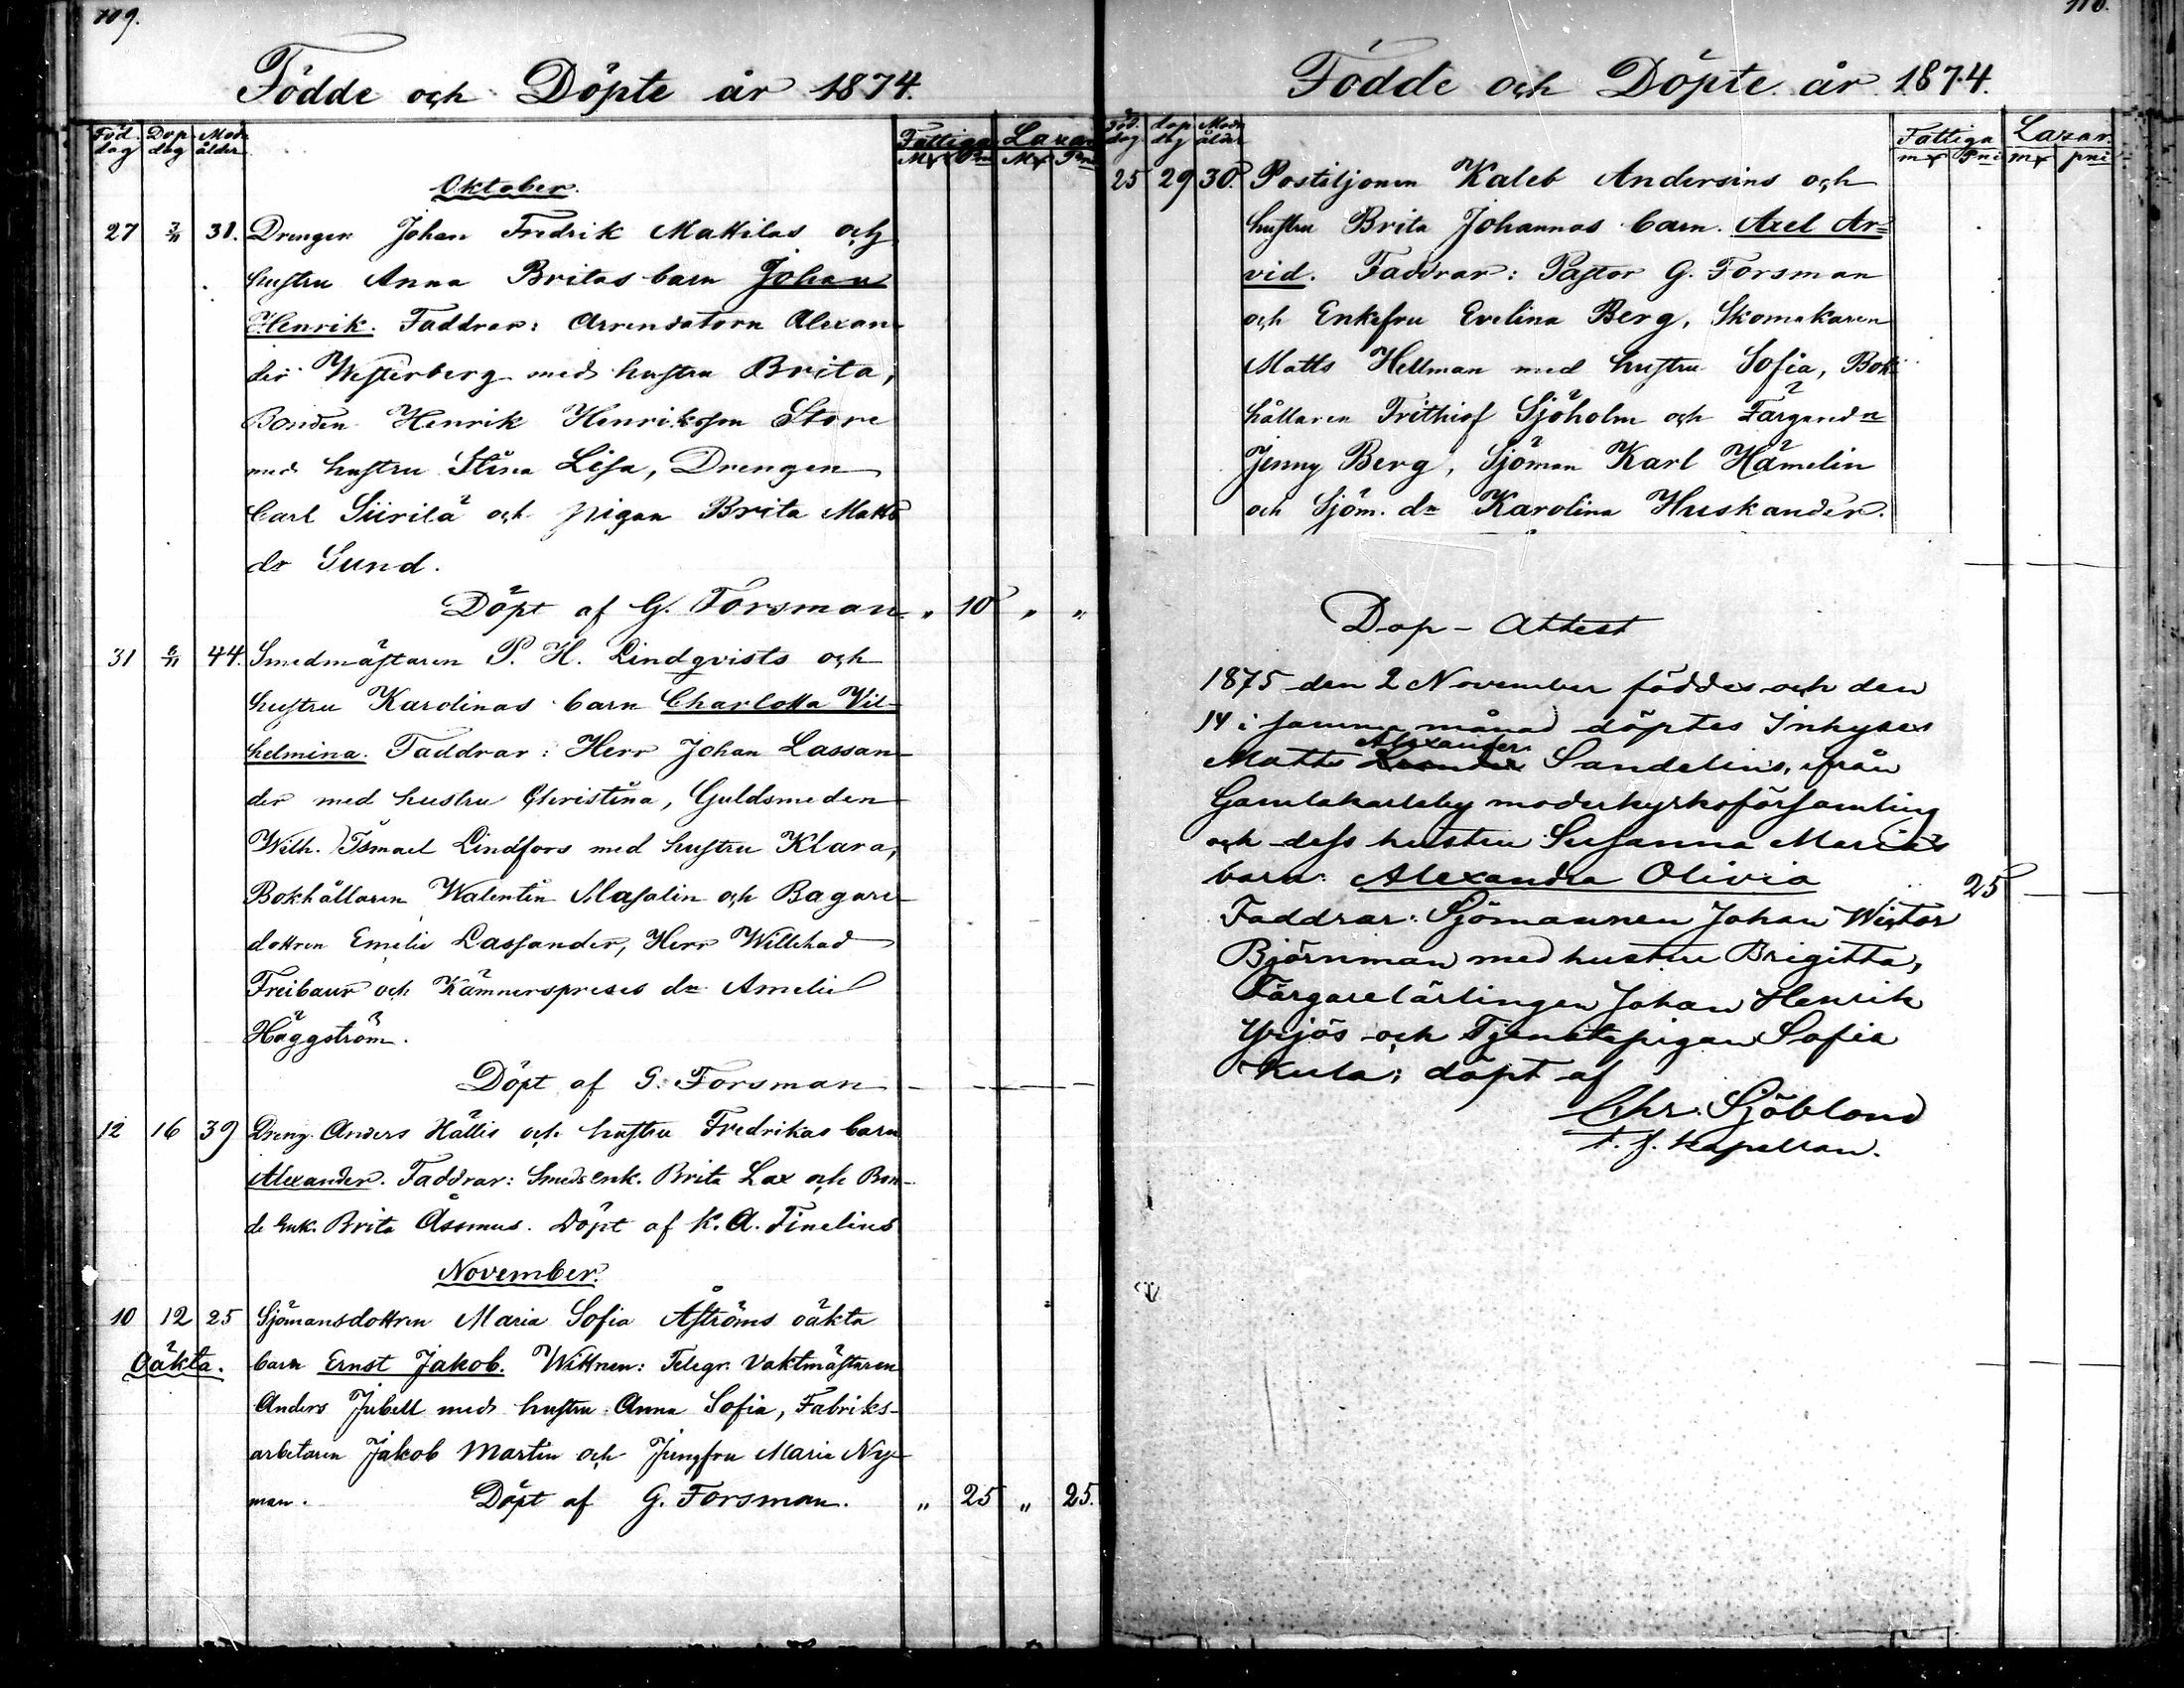 109.
Födde och Döpte år 1874.
Föd. dag Dop dag Mods ålder Fattiga Lazar.
Mk Pni Mk Pni
Oktober.
27 3/11 31. Drengen Johan Fredrik Mattilas och
hustru Anna Britas barn Johan
Henrik. Faddrar: Arrendatorn Alexan-
der Westerberg med hustru Brita,
Bonden Henrik Henriksson Store
med hustru Stina Lisa, Drengen
Carl Siirilä och pigan Brita Matts
dr Sund.
Döpt af G. Forsman. " 10 " "
31 6/11 44. Smedmästaren P. H. Lindqvists och
hustru Karolinas barn Charlotta Vil-
helmina. Faddrar: Herr Johan Lassan-
der med hustru Christina, Guldsmeden
Wilh. Ismael Lindfors med hustru Klara,
Bokhållaren Walentin Masalin och Bagare-
dottren Emelie Lassander, Herr Willehad
Freibaur och Kämnerspreses dr Amelie
Häggström.
Döpt af G. Forsman — — — —
12 16 39 Dreng. Anders Hällis och hustru Fredrikas barn
Alexander. Faddrar: Smeds enk. Brita Lax och Bon-
de Enk. Brita Åssmus. Döpt af K. A. Finelius
November.
10 12 25 Sjömansdottren Maria Sofia Åströms oäkta
Oäkta. barn Ernst Jakob. Wittnen: Telegr. Vaktmästaren
Anders Jubell med hustru Anna Sofia, Fabriks-
arbetaren Jakob Martin och Jungfru Maria Ny-
man. Döpt af G. Forsman. " 25 " 25.
110.
Födde och Döpte år 1874.
Föd. dag dop dag Mods ålder Fattiga Lazar.
mk Pni mk pni
25 29 30. Postiljonen Kaleb Andersins och
hustru Brita Johannas barn Axel Ar-
vid. Faddrar: Pastor G. Forsman
och Enkefru Evelina Berg, Skomakaren
Matts Hellman med hustru Sofia, Bok
hållaren Frithiof Sjöholm och Färgaredr
Jenny Berg, Sjöman Karl Hämelin
och Sjöm. dr Karolina Huskander.
Dop-Attest
1875 den 2 November föddes och den
14 i samma månad döptes Inhyses
Alexander
Matts Sandelins, ifrån
Gamlakarleby moderkyrkoförsamling
och dess hustru Susanna Marias
barn: Alexandra Olivia 25 — —
Faddrar: Sjömannen Johan Wiktor
Björnman med hustru Brigitta,
Färgarelärlingen Johan Henrik
Yrjös och Tjenstepigan Sofia
Kula; döpt af
Chr. Sjöblom
t. f. kapellan.